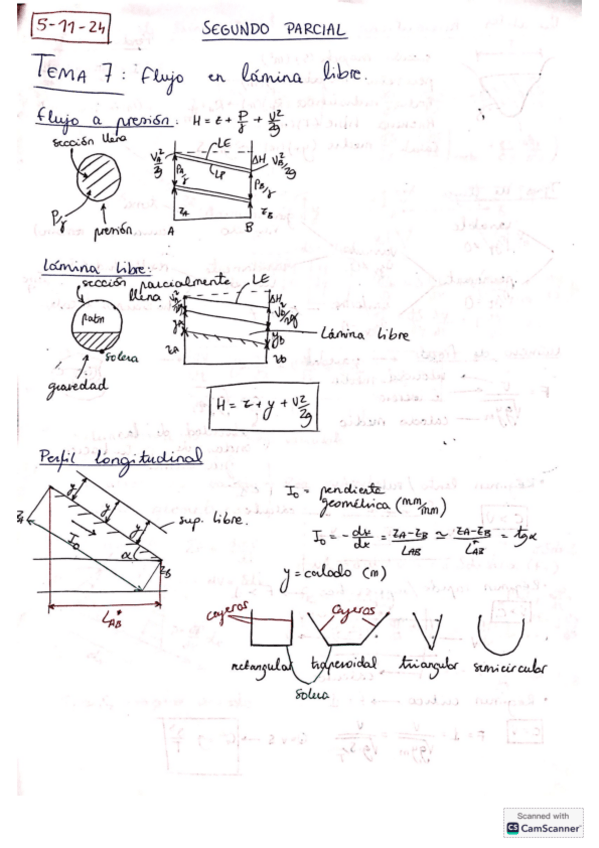 5-11-24
SEGUNDO PARCIAL
TEMA 7: Flujo en lámina libre.
Flujo a presión: H = z + P/γ + V²/2g
sección llena
P/γ
presión
V_A²/2g
P_A/γ
z_A
LE
LP
ΔH
V_B²/2g
P_B/γ
z_B
A
B
Lámina libre:
sección parcialmente llena
patm
solera
gravedad
V_A²/2g
y_A
z_A
LE
ΔH
V_B²/2g
y_B
z_B
Lámina libre
H = z + y + V²/2g
Perfil longitudinal
z_A
y
y
y
sup. libre.
I₀
α
z_B
L*_AB
I₀ = pendiente geométrica (mm/mm)
I₀ = - dz/dx = z_A-z_B/L_AB ≃ z_A-z_B/L*_AB = tgα
y = calado (m)
cajeros
cajeros
rectangular
trapezoidal
triangular
semicircular
solera
Scanned with
CS CamScanner